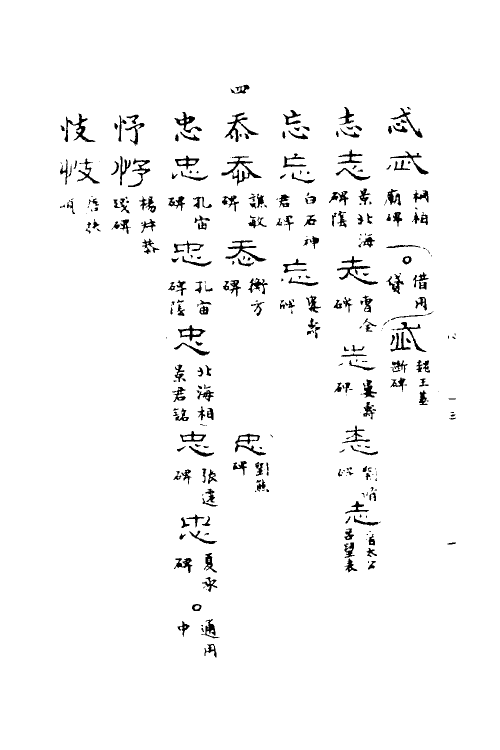 忒 忒 桐柏廟碑 ○借用貸 忒 魏王基斷碑
志 志 景北海碑陰 志 曹全碑 志 婁壽碑 志 劉脩碑 志 晉太公呂望表
忘 忘 白石神君碑 忘 婁壽碑
四
忝 忝 譙敏碑 忝 衡方碑 忠 劉熊碑
忠 忠 孔宙碑 忠 孔宙碑陰 忠 北海相景君銘 忠 張遷碑 忠 夏承碑 ○通用中
忬 忬 楊叔恭殘碑
忮 忮 唐扶頌
心
一三
一